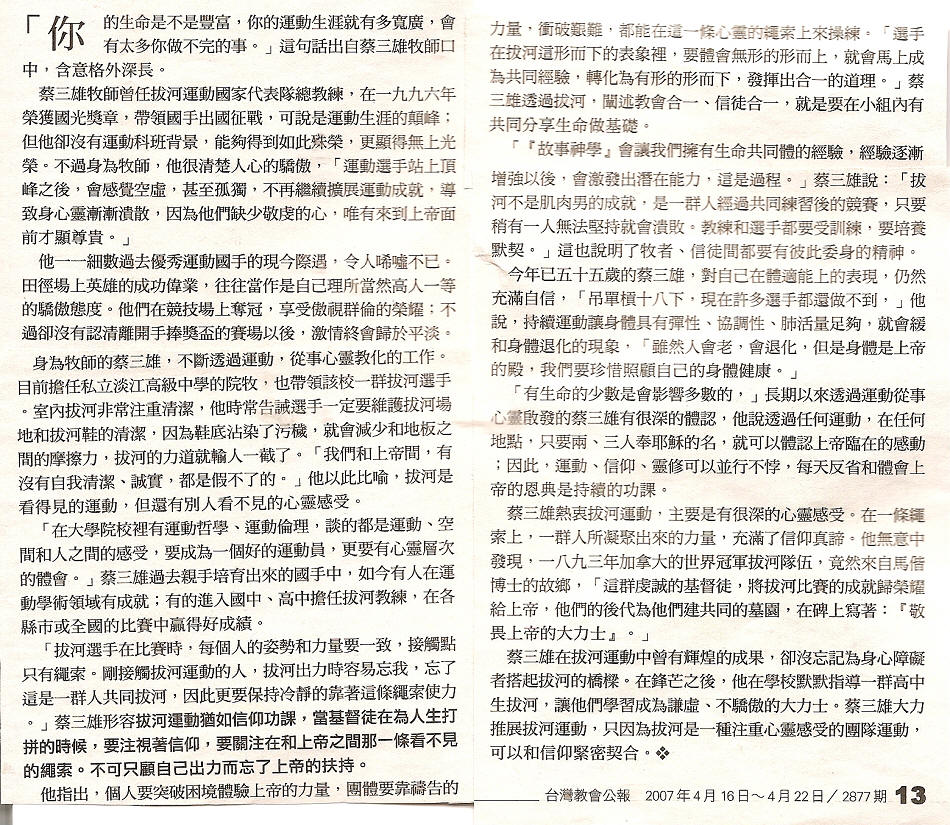 「你的生命是不是豐富，你的運動生涯就有多寬廣，會
有太多你做不完的事。」這句話出自蔡三雄牧師口
中，含意格外深長。
蔡三雄牧師曾任拔河運動國家代表隊總教練，在一九九六年
榮獲國光獎章，帶領國手出國征戰，可說是運動生涯的顛峰；
但他卻沒有運動科班背景，能夠得到如此殊榮，更顯得無上光
榮。不過身為牧師，他很清楚人心的驕傲，「運動選手站上頂
峰之後，會感覺空虛，甚至孤獨，不再繼續擴展運動成就，導
致身心靈漸漸潰散，因為他們缺少敬虔的心，唯有來到上帝面
前才顯尊貴。」
他一一細數過去優秀運動國手的現今際遇，令人唏噓不已。
田徑場上英雄的成功偉業，往往當作是自己理所當然高人一等
的驕傲態度。他們在競技場上奪冠，享受傲視群倫的榮耀；不
過卻沒有認清離開手捧獎盃的賽場以後，激情終會歸於平淡。
身為牧師的蔡三雄，不斷透過運動，從事心靈教化的工作。
目前擔任私立淡江高級中學的院牧，也帶領該校一群拔河選手
。室內拔河非常注重清潔，他時常告誡選手一定要維護拔河場
地和拔河鞋的清潔，因為鞋底沾染了污穢，就會減少和地板之
間的摩擦力，拔河的力道就輸人一截了。「我們和上帝間，有
沒有自我清潔、誠實，都是假不了的。」他以此比喻，拔河是
看得見的運動，但還有別人看不見的心靈感受。
「在大學院校裡有運動哲學、運動倫理，談的都是運動、空
間和人之間的感受，要成為一個好的運動員，更要有心靈層次
的體會。」蔡三雄過去親手培育出來的國手中，如今有人在運
動學術領域有成就；有的進入國中、高中擔任拔河教練，在各
縣市或全國的比賽中贏得好成績。
「拔河選手在比賽時，每個人的姿勢和力量要一致，接觸點
只有繩索。剛接觸拔河運動的人，拔河出力時容易忘我，忘了
這是一群人共同拔河，因此更要保持冷靜的靠著這條繩索使力
。」蔡三雄形容拔河運動猶如信仰功課，當基督徒在為人生打
拼的時候，要注視著信仰，要關注在和上帝之間那一條看不見
的繩索。不可只顧自己出力而忘了上帝的扶持。
他指出，個人要突破困境體驗上帝的力量，團體要靠禱告的
力量，衝破艱難，都能在這一條心靈的繩索上來操練。「選手
在拔河這形而下的表象裡，要體會無形的形而上，就會馬上成
為共同經驗，轉化為有形的形而下，發揮出合一的道理。」蔡
三雄透過拔河，闡述教會合一、信徒合一，就是要在小組內有
共同分享生命做基礎。
「『故事神學』會讓我們擁有生命共同體的經驗，經驗逐漸
增強以後，會激發出潛在能力，這是過程。」蔡三雄說：「拔
河不是肌肉男的成就，是一群人經過共同練習後的競賽，只要
稍有一人無法堅持就會潰敗。教練和選手都要受訓練，要培養
默契。」這也說明了牧者、信徒間都要有彼此委身的精神。
今年已五十五歲的蔡三雄，對自己在體適能上的表現，仍然
充滿自信，「吊單槓十八下，現在許多選手都還做不到，」他
說，持續運動讓身體具有彈性、協調性、肺活量足夠，就會緩
和身體退化的現象，「雖然人會老，會退化，但是身體是上帝
的殿，我們要珍惜照顧自己的身體健康。」
「有生命的少數是會影響多數的，」長期以來透過運動從事
心靈啟發的蔡三雄有很深的體認，他說透過任何運動，在任何
地點，只要兩、三人奉耶穌的名，就可以體認上帝臨在的感動
；因此，運動、信仰、靈修可以並行不悖，每天反省和體會上
帝的恩典是持續的功課。
蔡三雄熱衷拔河運動，主要是有很深的心靈感受。在一條繩
索上，一群人所凝聚出來的力量，充滿了信仰真諦。他無意中
發現，一八九三年加拿大的世界冠軍拔河隊伍，竟然來自馬偕
博士的故鄉，「這群虔誠的基督徒，將拔河比賽的成就歸榮耀
給上帝，他們的後代為他們建共同的墓園，在碑上寫著：『敬
畏上帝的大力士』。」
蔡三雄在拔河運動中曾有輝煌的成果，卻沒忘記為身心障礙
者搭起拔河的橋樑。在鋒芒之後，他在學校默默指導一群高中
生拔河，讓他們學習成為謙虛、不驕傲的大力士。蔡三雄大力
推展拔河運動，只因為拔河是一種注重心靈感受的團隊運動，
可以和信仰緊密契合。❖
台灣教會公報　2007年4月16日～4月22日／2877期 13